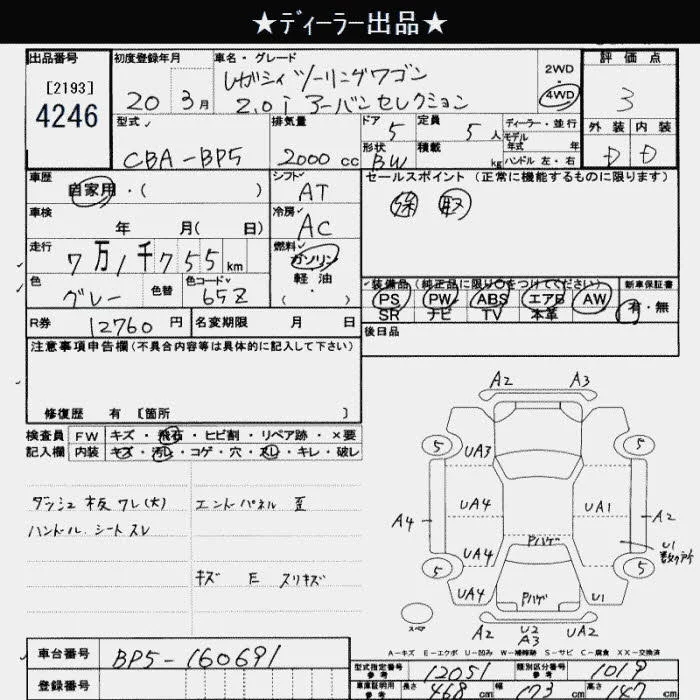 ★ディーラー出品★
出品番号 初度登録年月 車名・グレード 評価点
[2193] レガシィ ツーリングワゴン 2WD
4246 20年 3月 2.0i アーバンセレクション 4WD 3
型式 排気量 ドア 5 定員 5人 ディーラー・並行 外装 内装
モデル年式 年
CBA-BP5 2000cc 形状 BW 積載 kg ハンドル 左・右 D D
車歴 シフト セールスポイント(正常に機能するものに限ります)
自家用・( ) AT 保 取
車検 冷房
年 月( 日) AC
走行 燃料
7万1千755km ガソリン
軽油
色 色替 色コード ( ・ ) 装備品(純正品に限り○をつけてください) 新車保証書
グレー 65Z PS PW ABS エアB AW 有・無
SR ナビ TV 本革
R券 12760円 名変期限 月 日 後日品
注意事項申告欄(不具合内容等は具体的に記入して下さい)
修復歴 有 [箇所 ]
検査員 FW キズ・飛石・ヒビ割・リペア跡・×要
記入欄 内装 キズ・汚レ・コゲ・穴・スレ・キレ・破レ
ダッシュ板ワレ(大) エンドパネル歪
ハンドル シートスレ
キズ E スリキズ
A2 A3
5 5
UA3
UA4 UA1
A4 A2
Pハゲ U1
UA4
5 5
UA4 Pハゲ U1
スペア A2 U2 UA2
A3
A-キズ E-エクボ U-凹み W-補修跡 S-サビ C-腐食 XX-交換済
車台番号 BP5-160691 型式指定番号 参考 12051 類別区分番号 参考 1019
登録番号 車庫証明用 参考 長さ 468cm 幅 173cm 高さ 147cm